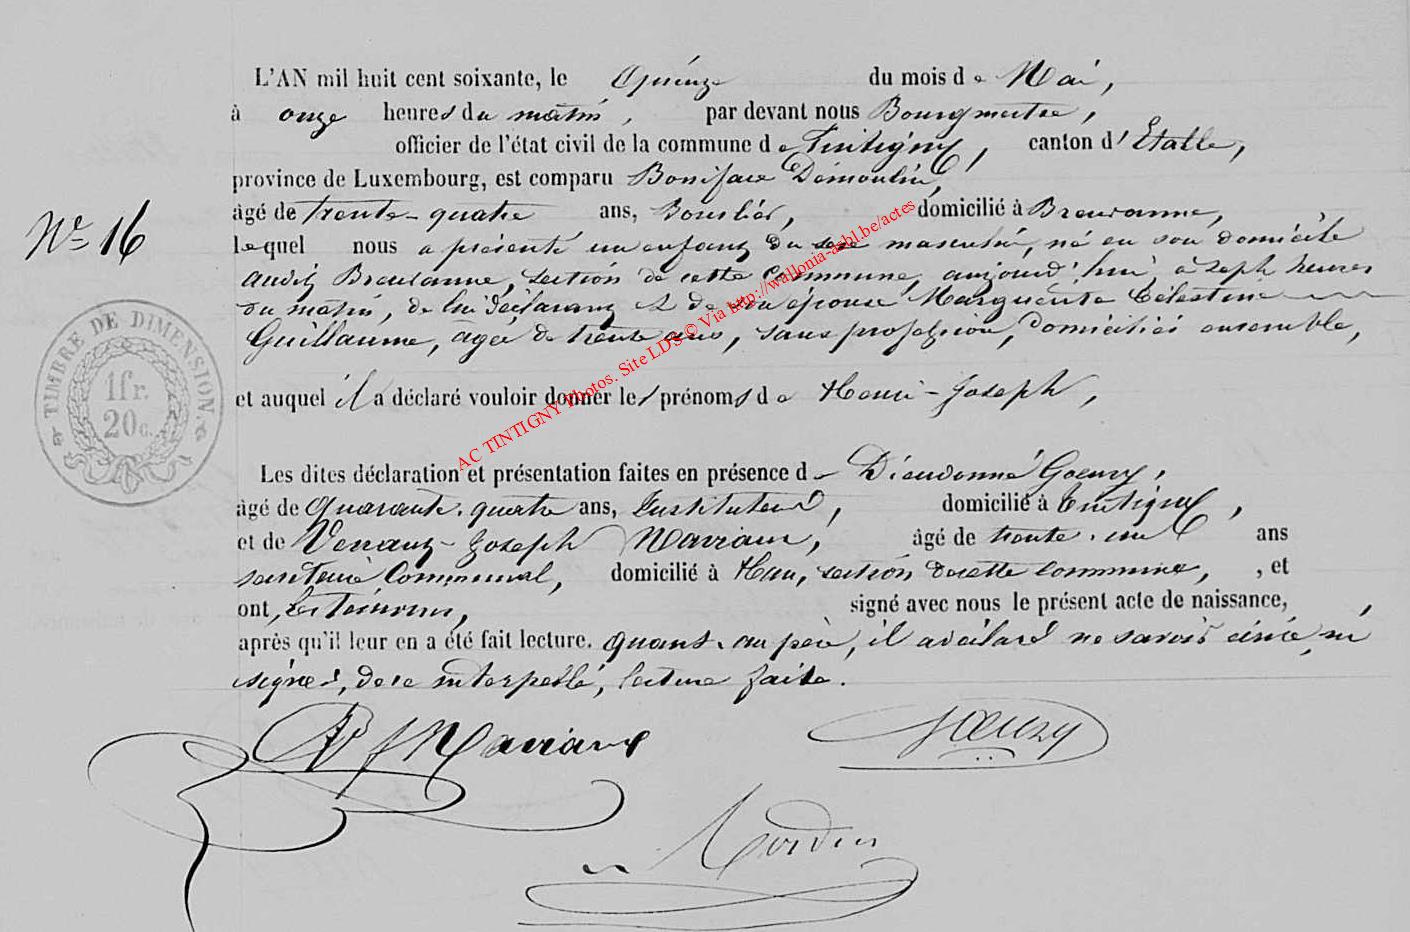 L'AN mil huit cent soixante, le Quinze du mois de Mai,
à onze heures du matin, par devant nous Bourgmestre,
officier de l'état civil de la commune de Tintigny, canton d'Etalle,
province de Luxembourg, est comparu Boniface Demoulin,
âgé de trente-quatre ans, domicilié à Breuvanne,
N° 16
lequel nous a présenté un enfant du sexe masculin, né en son domicile
audit Breuvanne, section de cette Commune, aujourd'hui à sept heures
du matin, de lui déclarant et de son épouse Marguerite Célestine
Guillaume, agée de trente ans, sans profession, domiciliés ensemble,
TIMBRE DE DIMENSION
1 fr.
20 c.
et auquel il a déclaré vouloir donner les prénoms de Henri-Joseph,
AC TINTIGNY Photos. Site LDS © Via http://wallonia-asbl.be/actes
Les dites déclaration et présentation faites en présence de Dieudonné Goeury,
âgé de Quarante-quatre ans, Instituteur, domicilié à Tintigny,
et de Venant-Joseph Maviaux, âgé de trente-un ans
secretaire Communal, domicilié à Han, section de cette commune, , et
ont, les témoins, signé avec nous le présent acte de naissance,
après qu'il leur en a été fait lecture. quant au père, il a déclaré ne savoir écrire, ni
signer, de ce interpellé, lecture faite.
Goeury